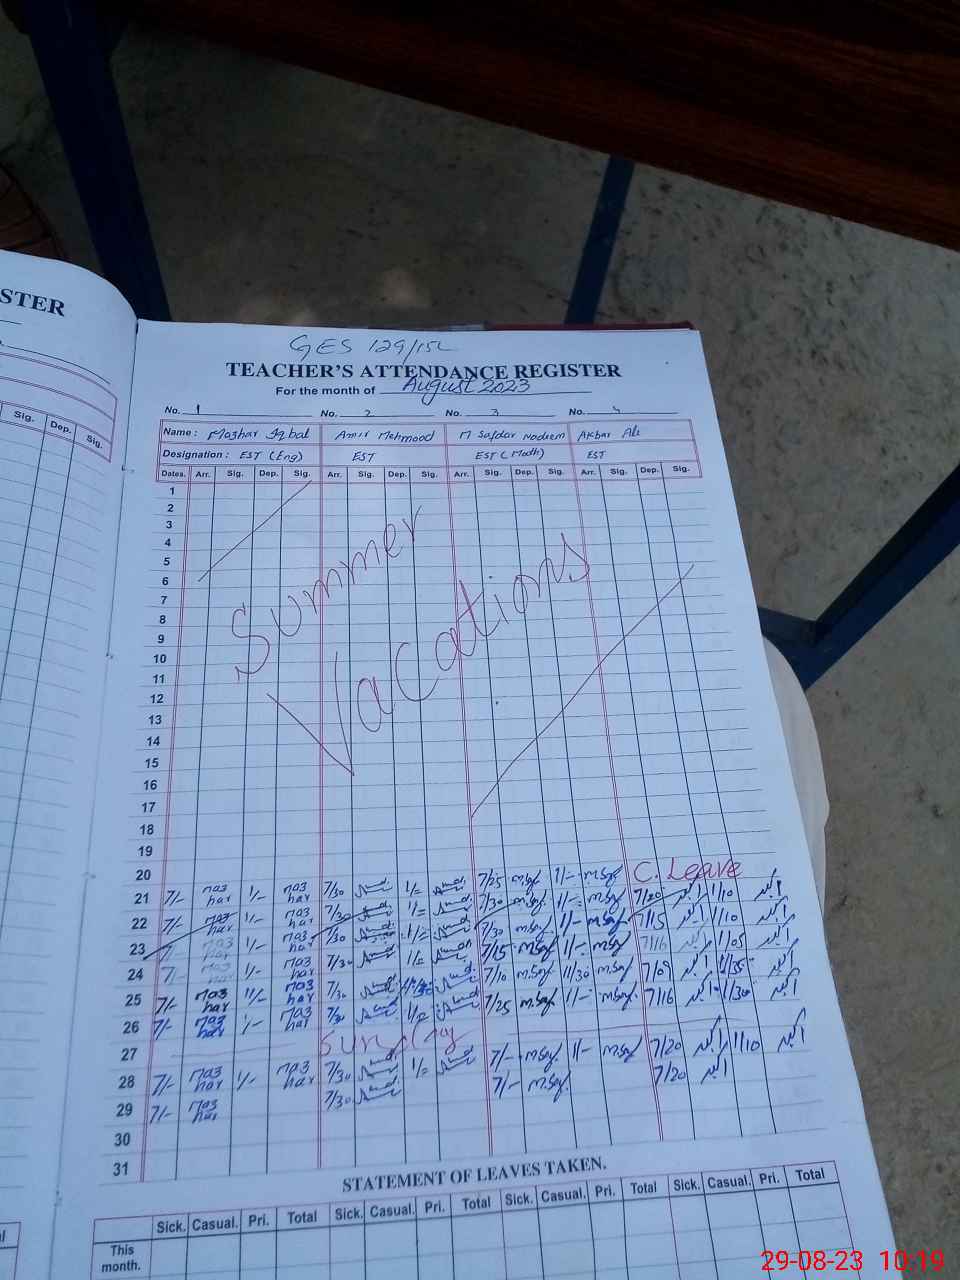 STER
Sig. Dep. Sig.
GES 129/15L
TEACHER'S ATTENDANCE REGISTER
For the month of August 2023
No. 1 No. 2 No. 3 No. 4
Name: Mazhar Iqbal Amir Mehmood M Safdar Nadeem Akbar Ali
Designation: EST (Eng) EST EST (Math) EST
Dates. Arr. Sig. Dep. Sig. Arr. Sig. Dep. Sig. Arr. Sig. Dep. Sig. Arr. Sig. Dep. Sig.
1
2
3
4
5
6
7
8
9
10
11
12
13
14
15
16
17
18
19
Summer
Vacations
20
21 7/- maz har 1/- maz har 7/30 1/= 7/25 m.saf 1/- m.saf C. Leave
22 7/- maz har 1/- maz har 7/30 1/= 7/30 m.saf 1/- m.saf 7/20 اکبر 1/10 اکبر
23 7/- maz har 1/- maz har 7/30 1/= 7/30 m.saf 1/- m.saf 7/15 اکبر 1/10 اکبر
24 7/- maz har 1/- maz har 7/30 1/= 7/15 m.saf 1/- m.saf 7/16 اکبر 1/05 اکبر
25 7/- maz har 11/- maz har 7/30 7/10 m.saf 11/30 m.saf 7/09 اکبر اکبر
26 7/- maz har 1/- maz har 7/30 1/= 7/25 m.saf 1/- m.saf 7/16 اکبر اکبر
27 Sunday
28 7/- maz har 1/- maz har 7/30 1/= 7/- m.saf 1/- m.saf 7/20 اکبر 1/10 اکبر
29 7/- maz har 7/30 7/- m.saf 7/20 اکبر
30
31
STATEMENT OF LEAVES TAKEN.
Sick. Casual. Pri. Total Sick. Casual. Pri. Total Sick. Casual. Pri. Total Sick. Casual. Pri. Total
This
month.
29-08-23 10:19